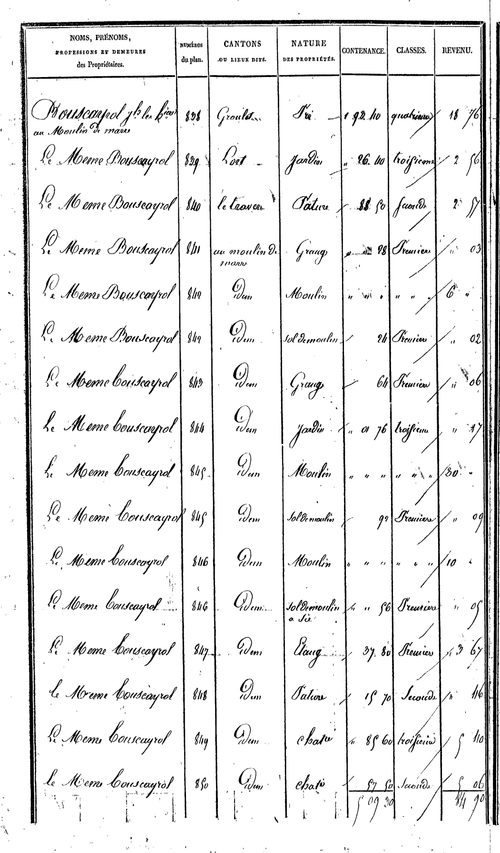 NOMS, PRÉNOMS, PROFESSIONS ET DEMEURES des Propriétaires. NUMÉROS du plan. CANTONS OU LIEUX DITS. NATURE DES PROPRIÉTÉS. CONTENANCE. CLASSES. REVENU.
Bouscayrol 838 Pré 1 92 40 quatrieme 18 76
au Moulin de
Le Meme Bouscayrol 839 Lort Jardin 26 40 troisieme 2 56
Le Meme Bouscayrol 840 Pature 88 50 Seconde 2 57
Le Meme Bouscayrol 841 au moulin de Grange 28 Premiere 03
Le Meme Bouscayrol 842 Idem Moulin 6
Le Meme Bouscayrol 842 Idem sol de moulin 24 Premiere 02
Le Meme Couscayrol 843 Idem Grange 64 Premiere 06
Le Meme Couscayrol 844 Idem Jardin 01 76 troisieme 17
Le Meme Couscayrol 845 Idem Moulin 30
Le Meme Couscayrol 845 Idem sol de moulin 92 Premiere 09
Le Meme Couscayrol 846 Idem Moulin 10
Le Meme Couscayrol 846 Idem sol de moulin 56 Premiere 05
a Sie
Le Meme Couscayrol 847 Idem Etang 37 80 Premiere 3 67
le Meme Couscayrol 848 Idem Pature 15 70 Seconde 116
Le Meme Couscayrol 849 Idem chatre 85 60 troisieme 5 110
le Meme Couscayrol 850 Idem chatre 57 50 Seconde 5 06
5 09 30 90